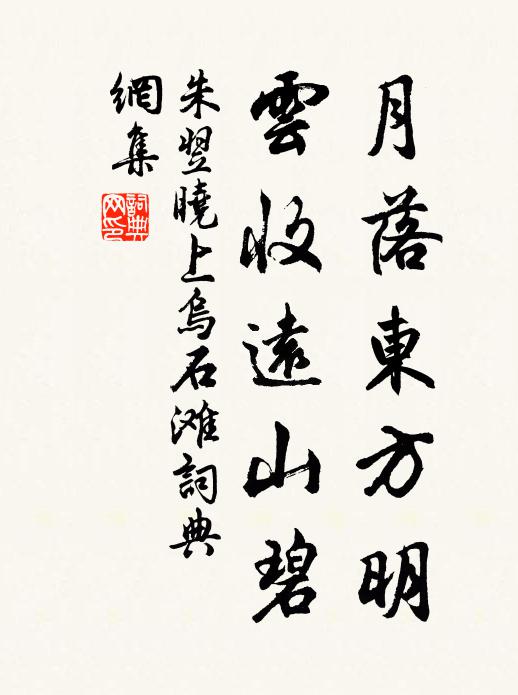 月落東方明
雲收遠山碧
朱翌曉上烏石灘詞典
網集
詞典
网印